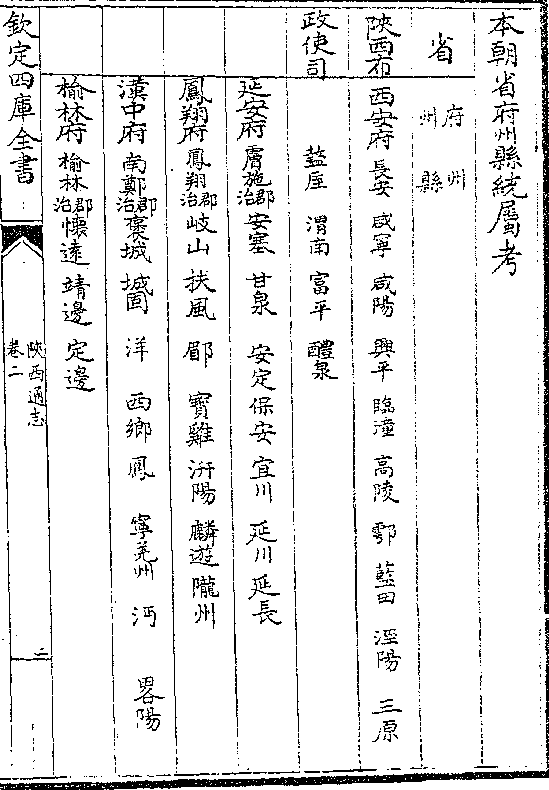 本朝省府州縣統屬考
省 府州 州縣
陜西布 西安府 長安 咸寧 咸陽 興平 臨潼 高陵 鄠 藍田 涇陽 三原
政使司 盩厔 渭南 富平 醴泉
延安府 膚施郡治 安塞 甘泉 安定 保安 宜川 延川 延長
鳳翔府 鳳翔郡治 岐山 扶風 郿 寶雞 汧陽 麟遊 隴州
漢中府 南鄭郡治 褒城 城固 洋 西鄉 鳳 寧羌州 沔 畧陽
榆林府 榆林郡治 懷遠 靖邊 定邊
欽定四庫全書 陜西通志 卷二 二